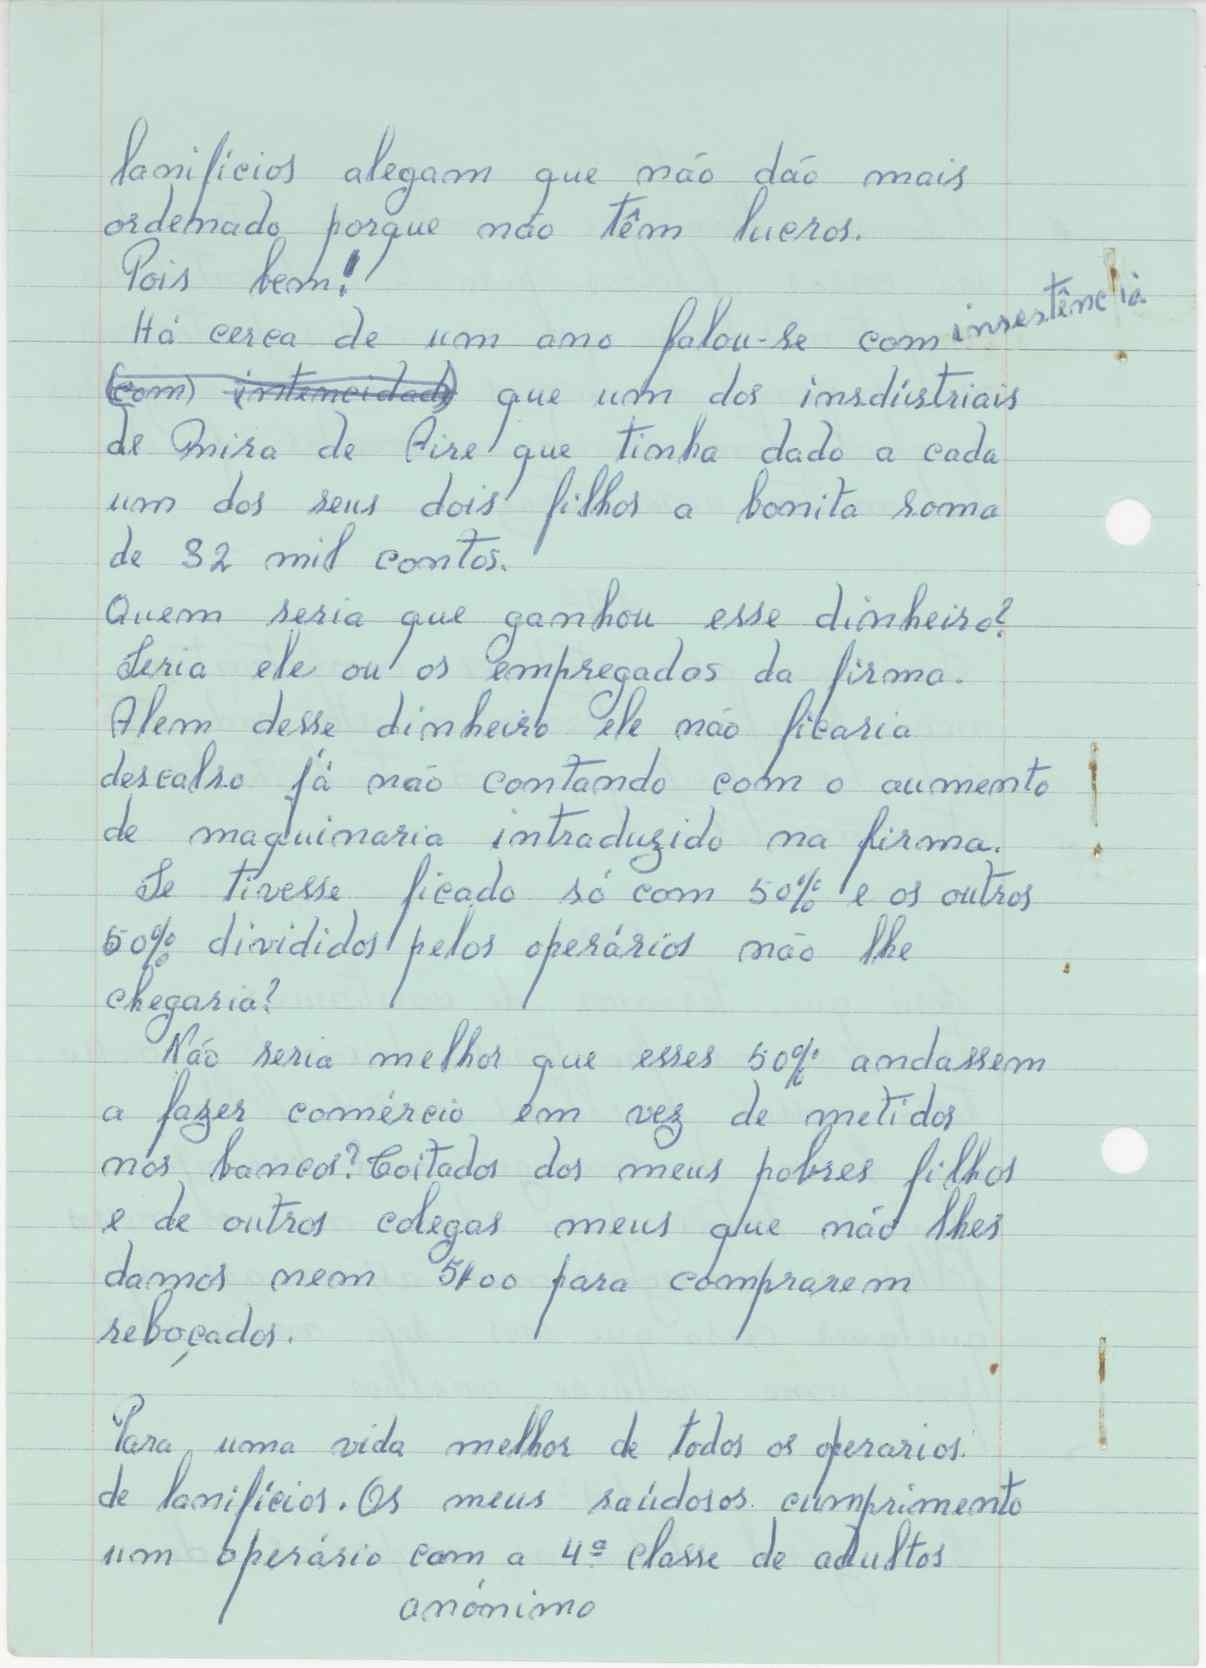 lanifícios alegam que não dão mais
ordenado porque não têm lucros.
Pois bem!
Há cerca de um ano falou-se com insestência
(com) intencidade que um dos insdústriais
de Mira de Aire que tinha dado a cada
um dos seus dois filhos a bonita soma
de 32 mil contos.
Quem seria que ganhou esse dinheiro?
Seria ele ou os empregados da firma.
Alem desse dinheiro ele não ficaria
descalso já não contando com o aumento
de maquinaria intraduzido na firma.
Se tivesse ficado só com 50% e os outros
50% divididos pelos operários não lhe
chegaria?
Não seria melhor que esses 50% andassem
a fazer comércio em vez de metidos
nos bancos? Coitados dos meus pobres filhos
e de outros colegas meus que não lhes
damos nem 5$00 para comprarem
reboçados.
Para uma vida melhor de todos os operarios
de lanifícios. Os meus saúdosos cumprimento
um operário com a 4ª classe de adultos
anónimo